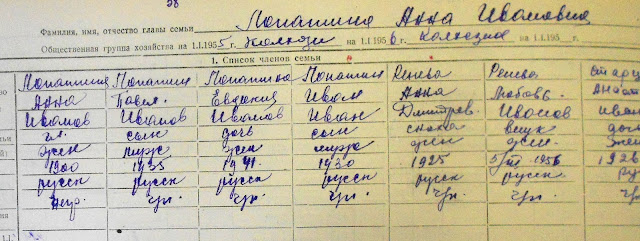 38
Фамилия, имя, отчество главы семьи Лопатина Анна Ивановна
Общественная группа хозяйства на 1.I.1955 г. колхозн на 1.I.1956 г. колхозное на 1.I.195 г.
1. Список членов семьи
Лопатина Лопатин Лопатина Лопатин Ренева Ренева
Анна Павел. Евдокия Иван Анна Любовь.
Иванов Иванов Иванов Иван Дмитрев. Иванов
гл. сын дочь сын сноха внук
жен муж жен муж жен жен.
1900 1935 1941 1930 1925 5/VII 1956 1926
русск русск русск русск русск русск.
негр. гр. гр. гр. гр. гр.